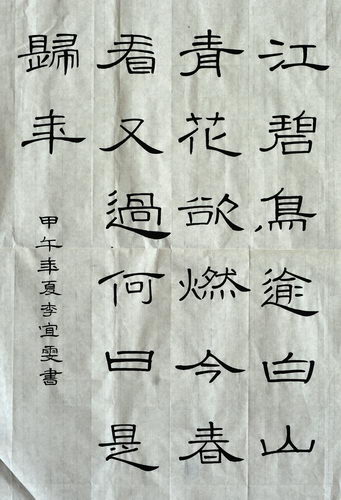 江碧鳥逾白山
青花欲燃今春
看又過何日是
歸年
甲午年夏李宜雯書